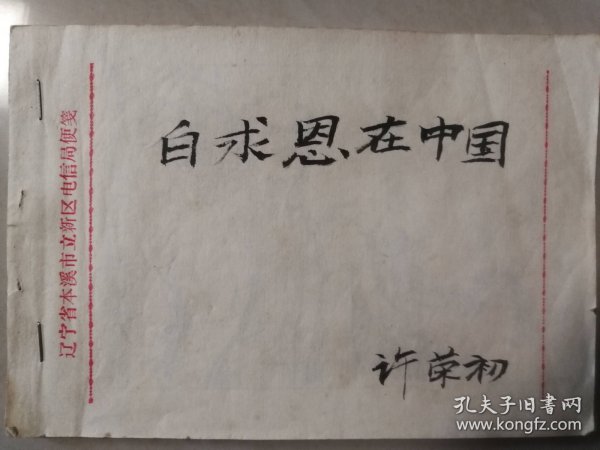 白求恩在中国
许荣初
辽宁省本溪市立新区电信局便笺
孔夫子旧书网
www.kongfz.com